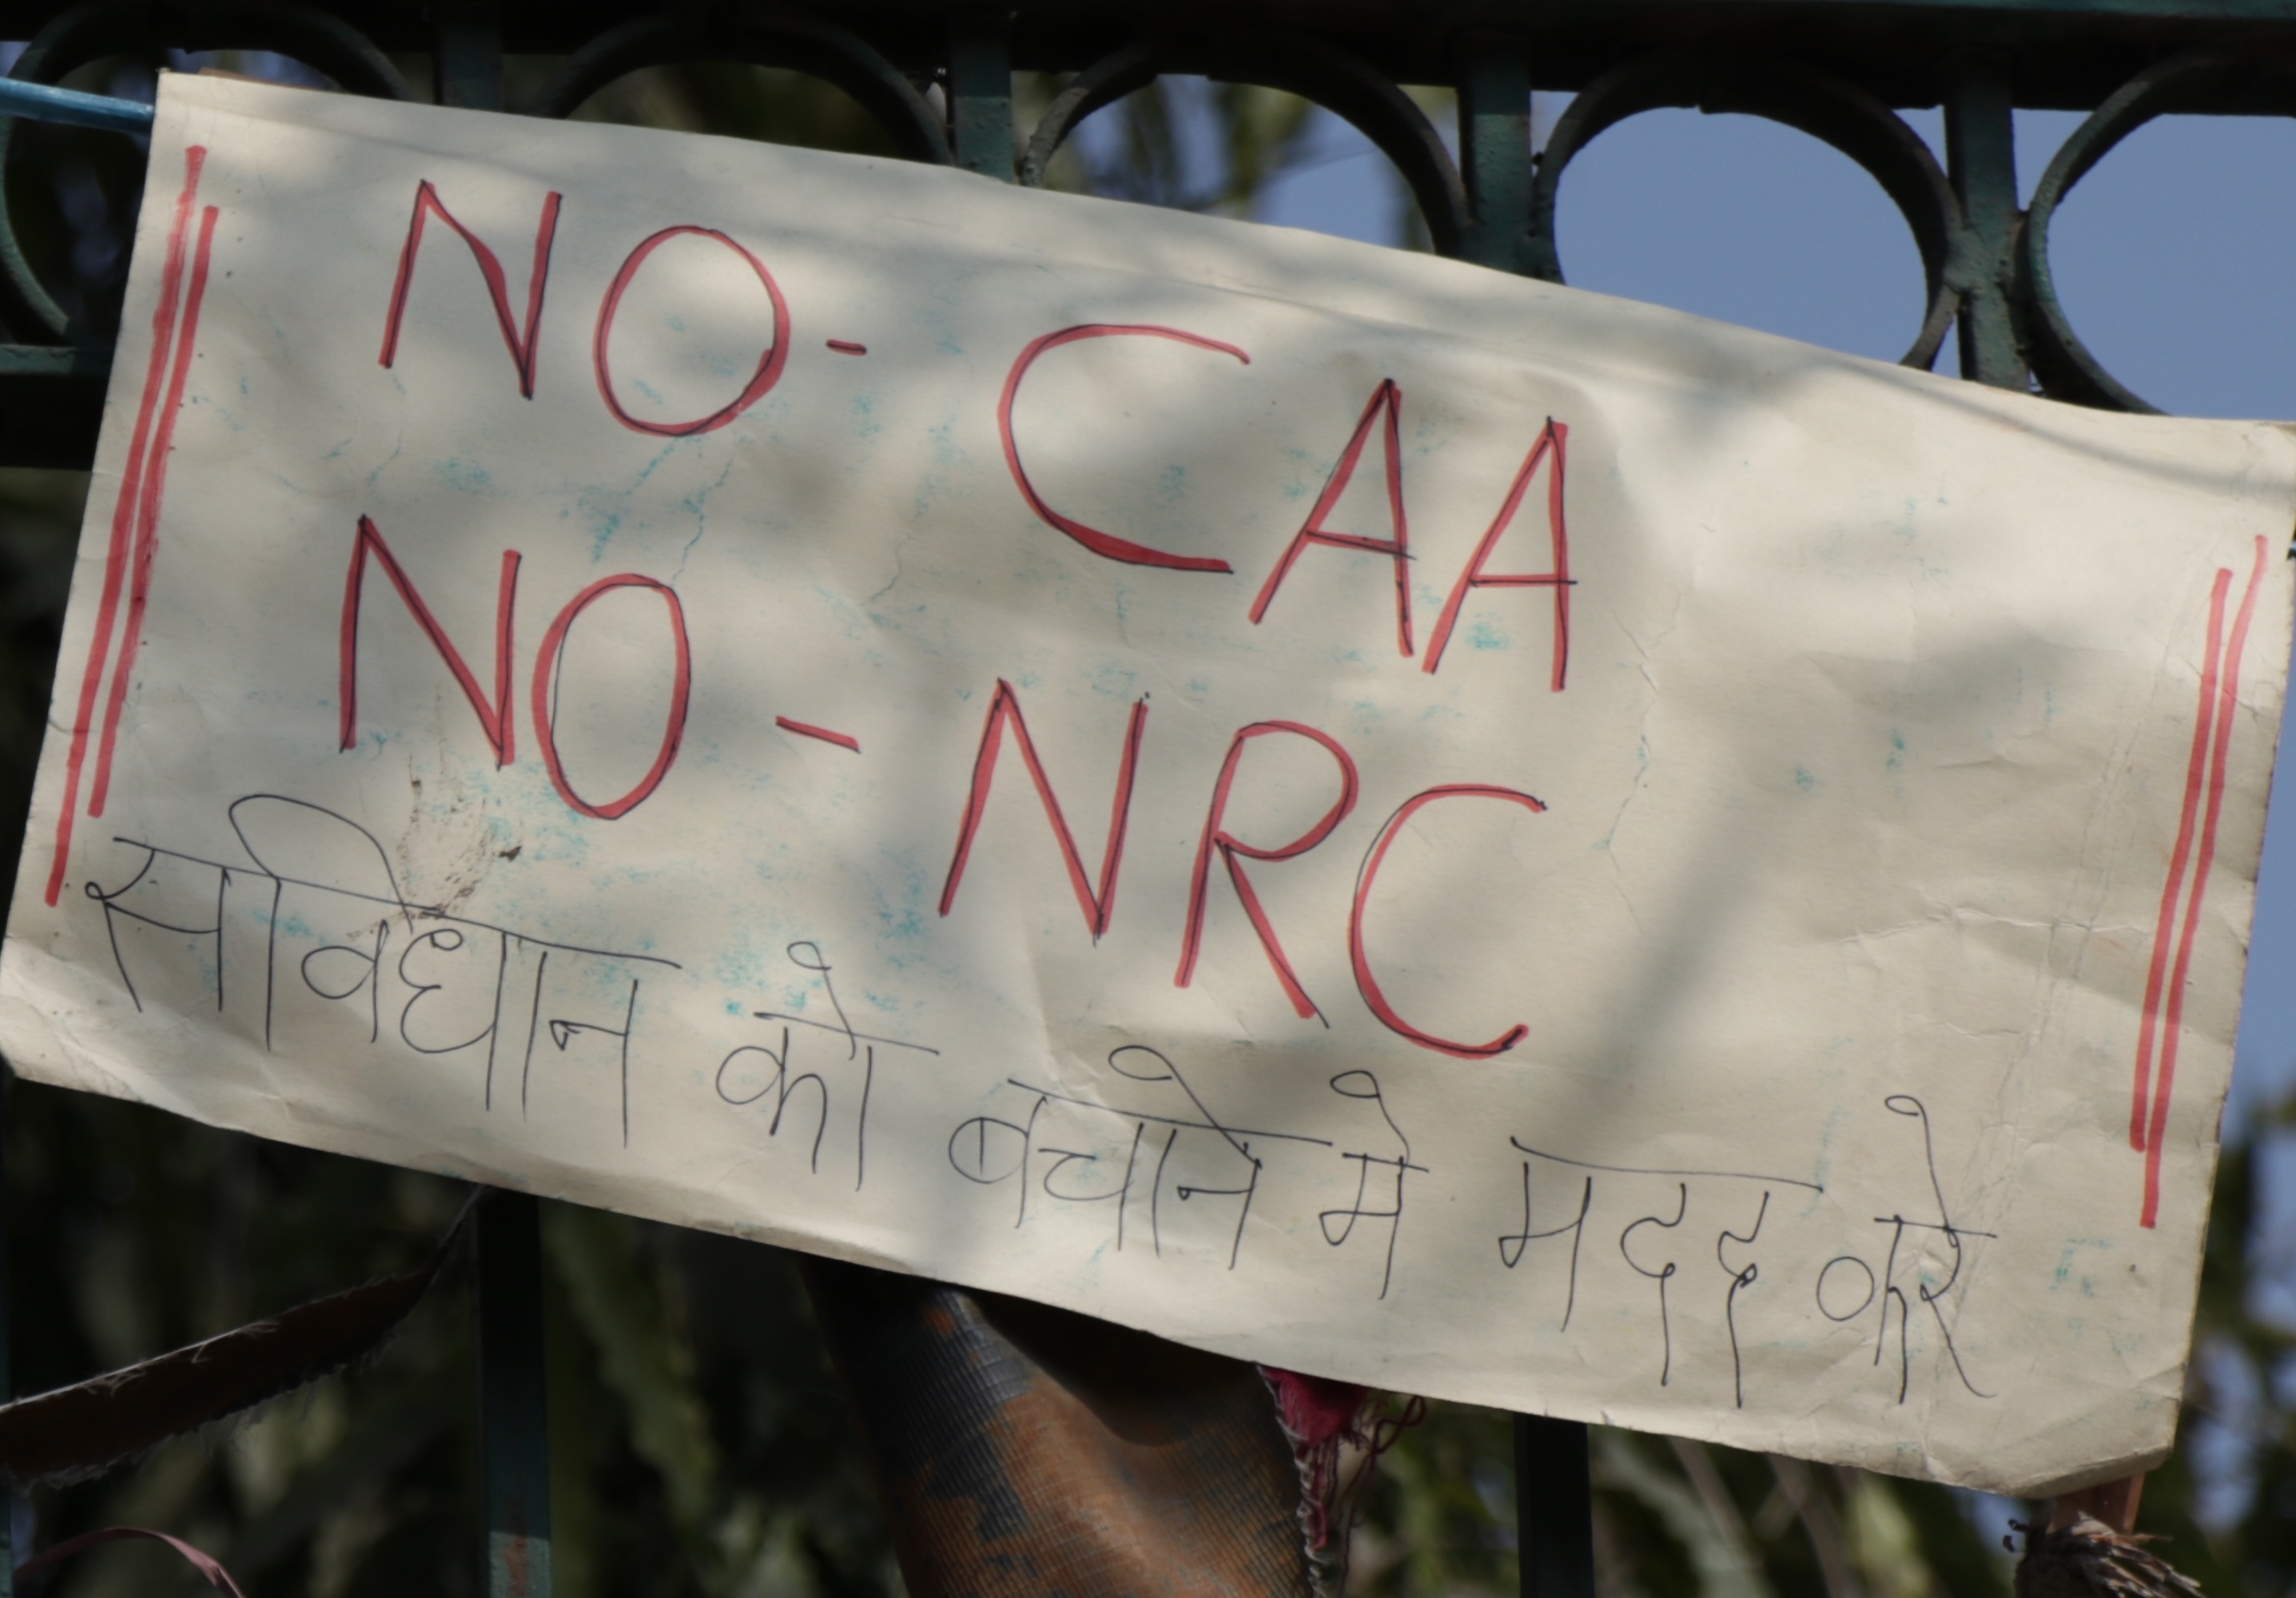 NO- CAA
NO - NRC
सविधान को बचाने मे मदद करे